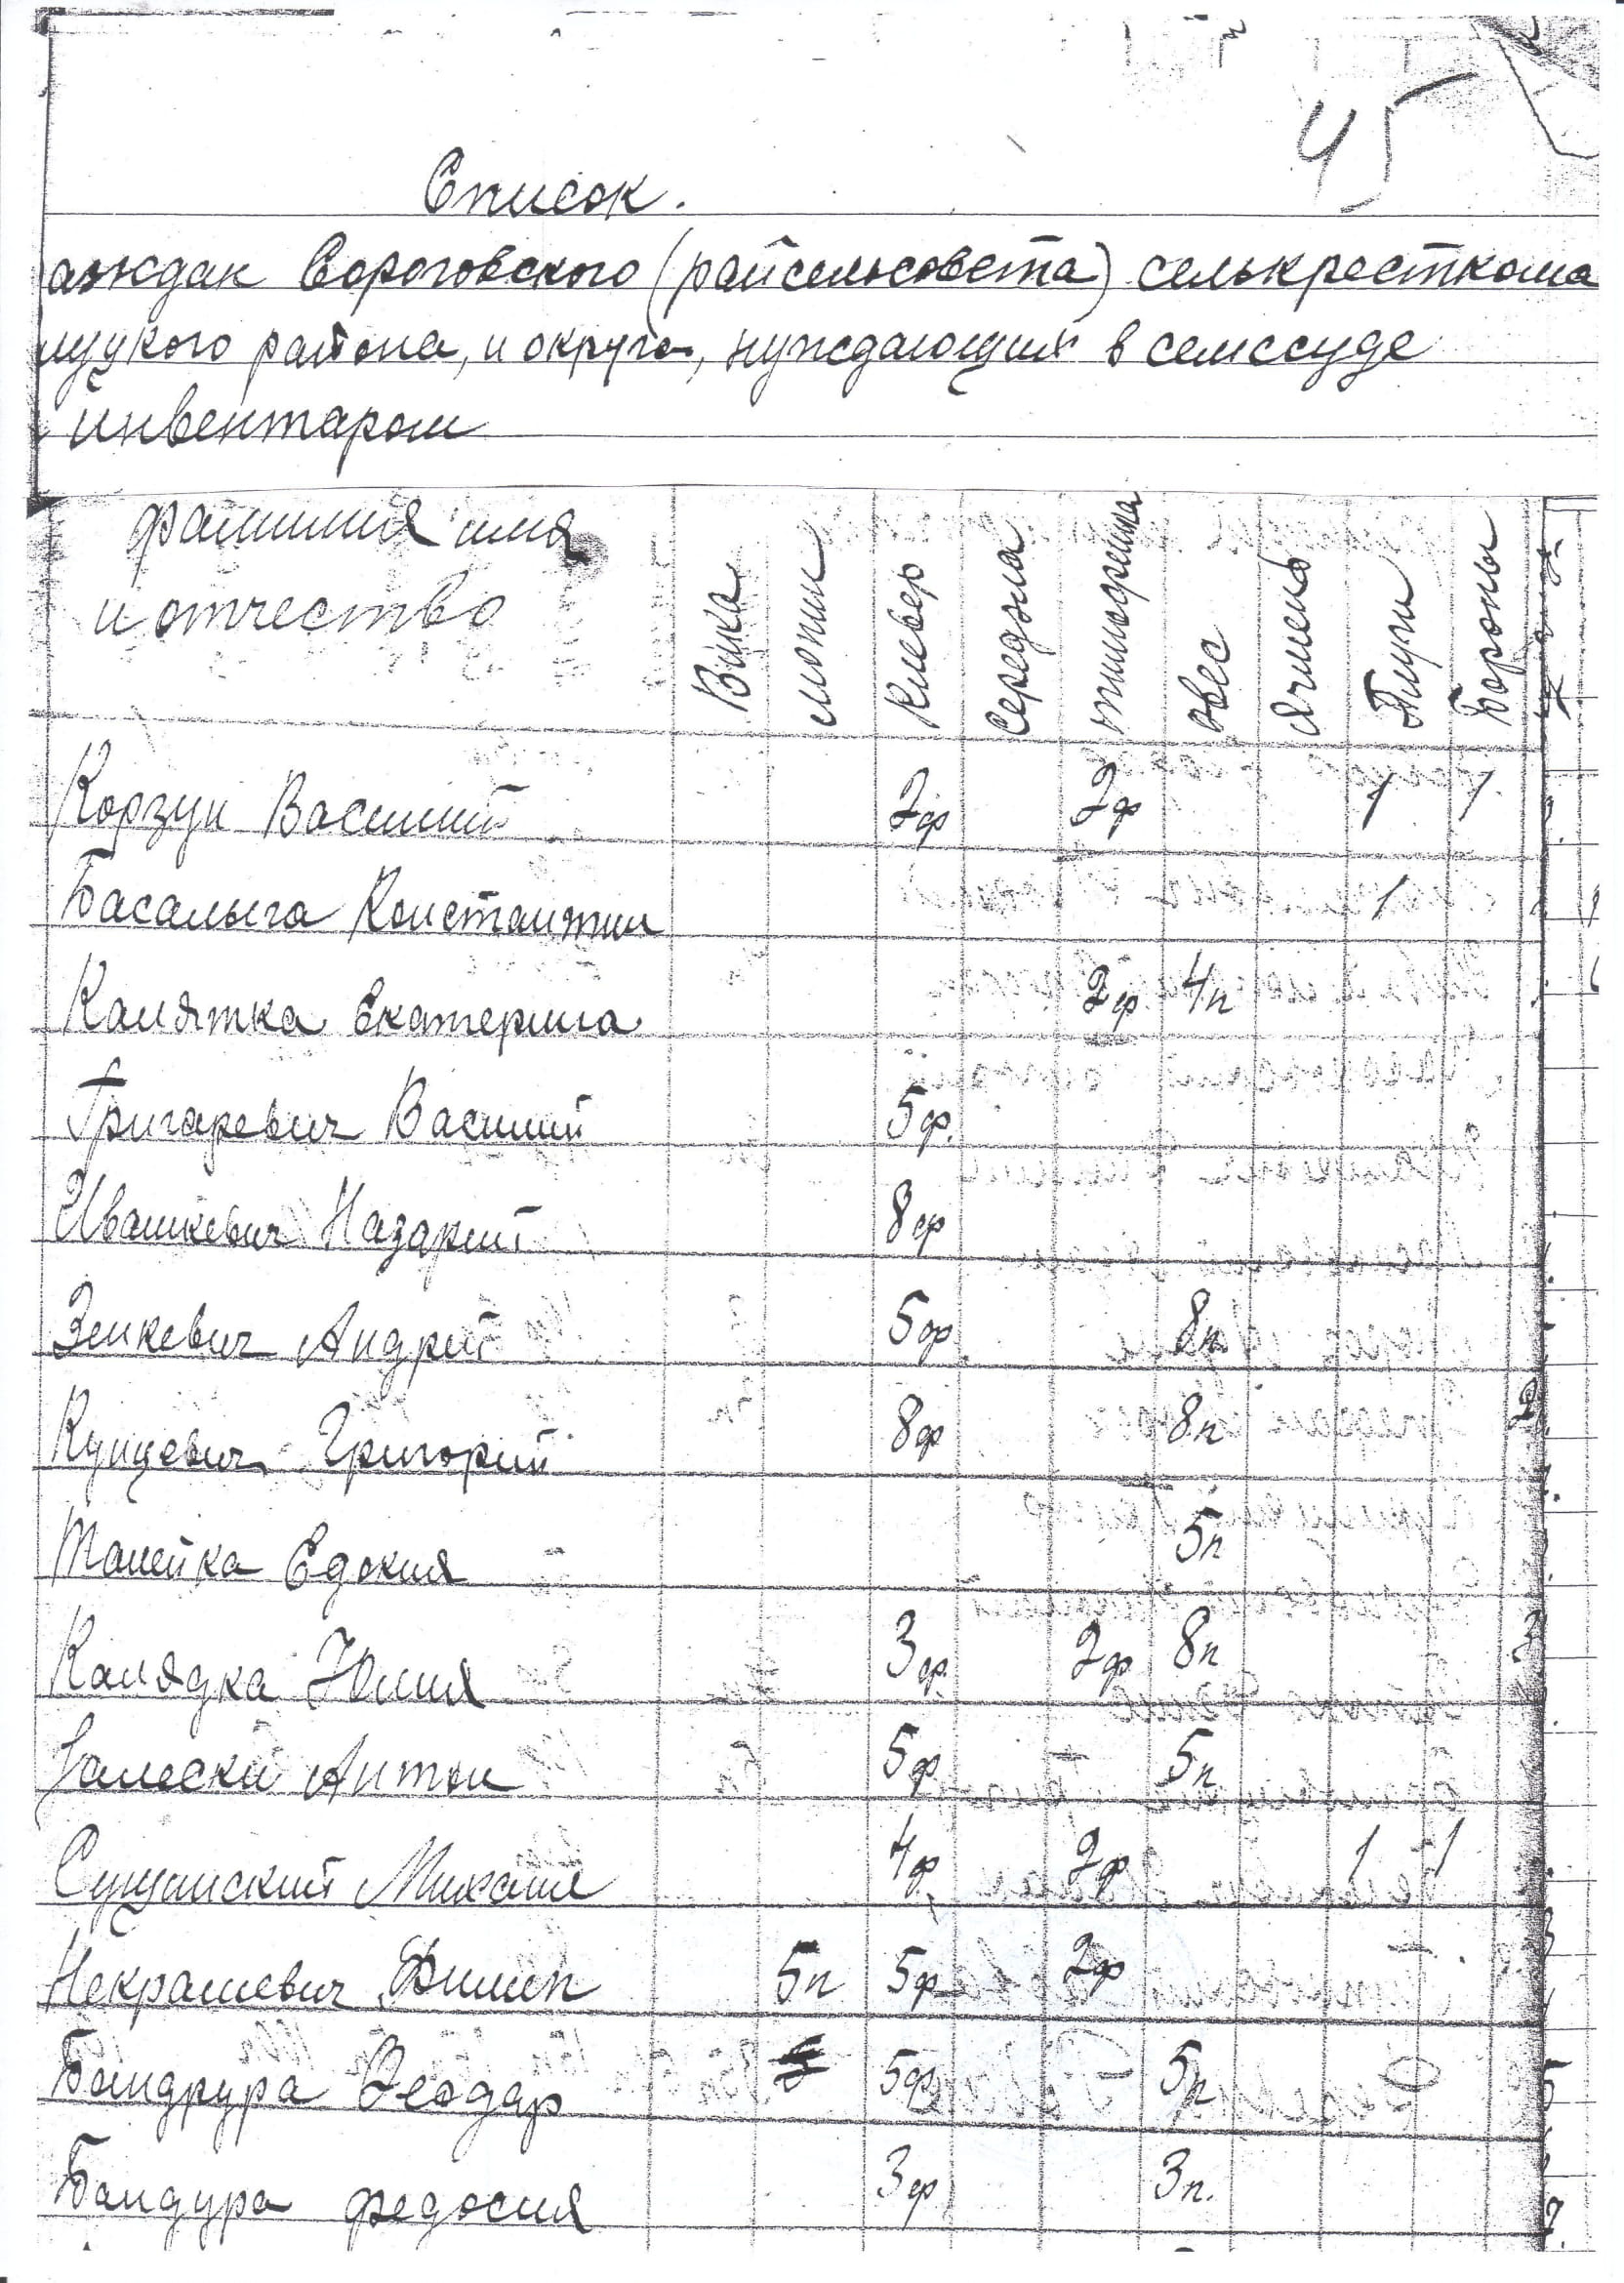 45
Список.
аждан Вороговского (райсельсовета) селькресткома
цукого района, и округа, нуждающия в семссуде
инвентаром
фамилия имя
и отчество
Вика
люпин
Клевер
Середэла
тимофеивка
овес
Ячмень
Плуги
Бороны
Корзун Василий 2ф 2ф 1 1
Басалыга Константин 1
Калятка Екатерина 2ф 4п
Григаревич Василий 5ф.
Ивашкевич Назарий 8ф
Зенкевич Андрей 5ф 8п
Кунцевич Григорий 8ф 8п
Шалейка Едокия 5п
Калядка Юлия 3ф. 2ф 8п
Залеский Антон 5ф 5п
Сущинский Михаил 4ф 2ф 1 1
Некрашевич Филип 5п 5ф 2ф
Бандрура Феодар 5ф 5п
Бандура федосия 3ф 3п.